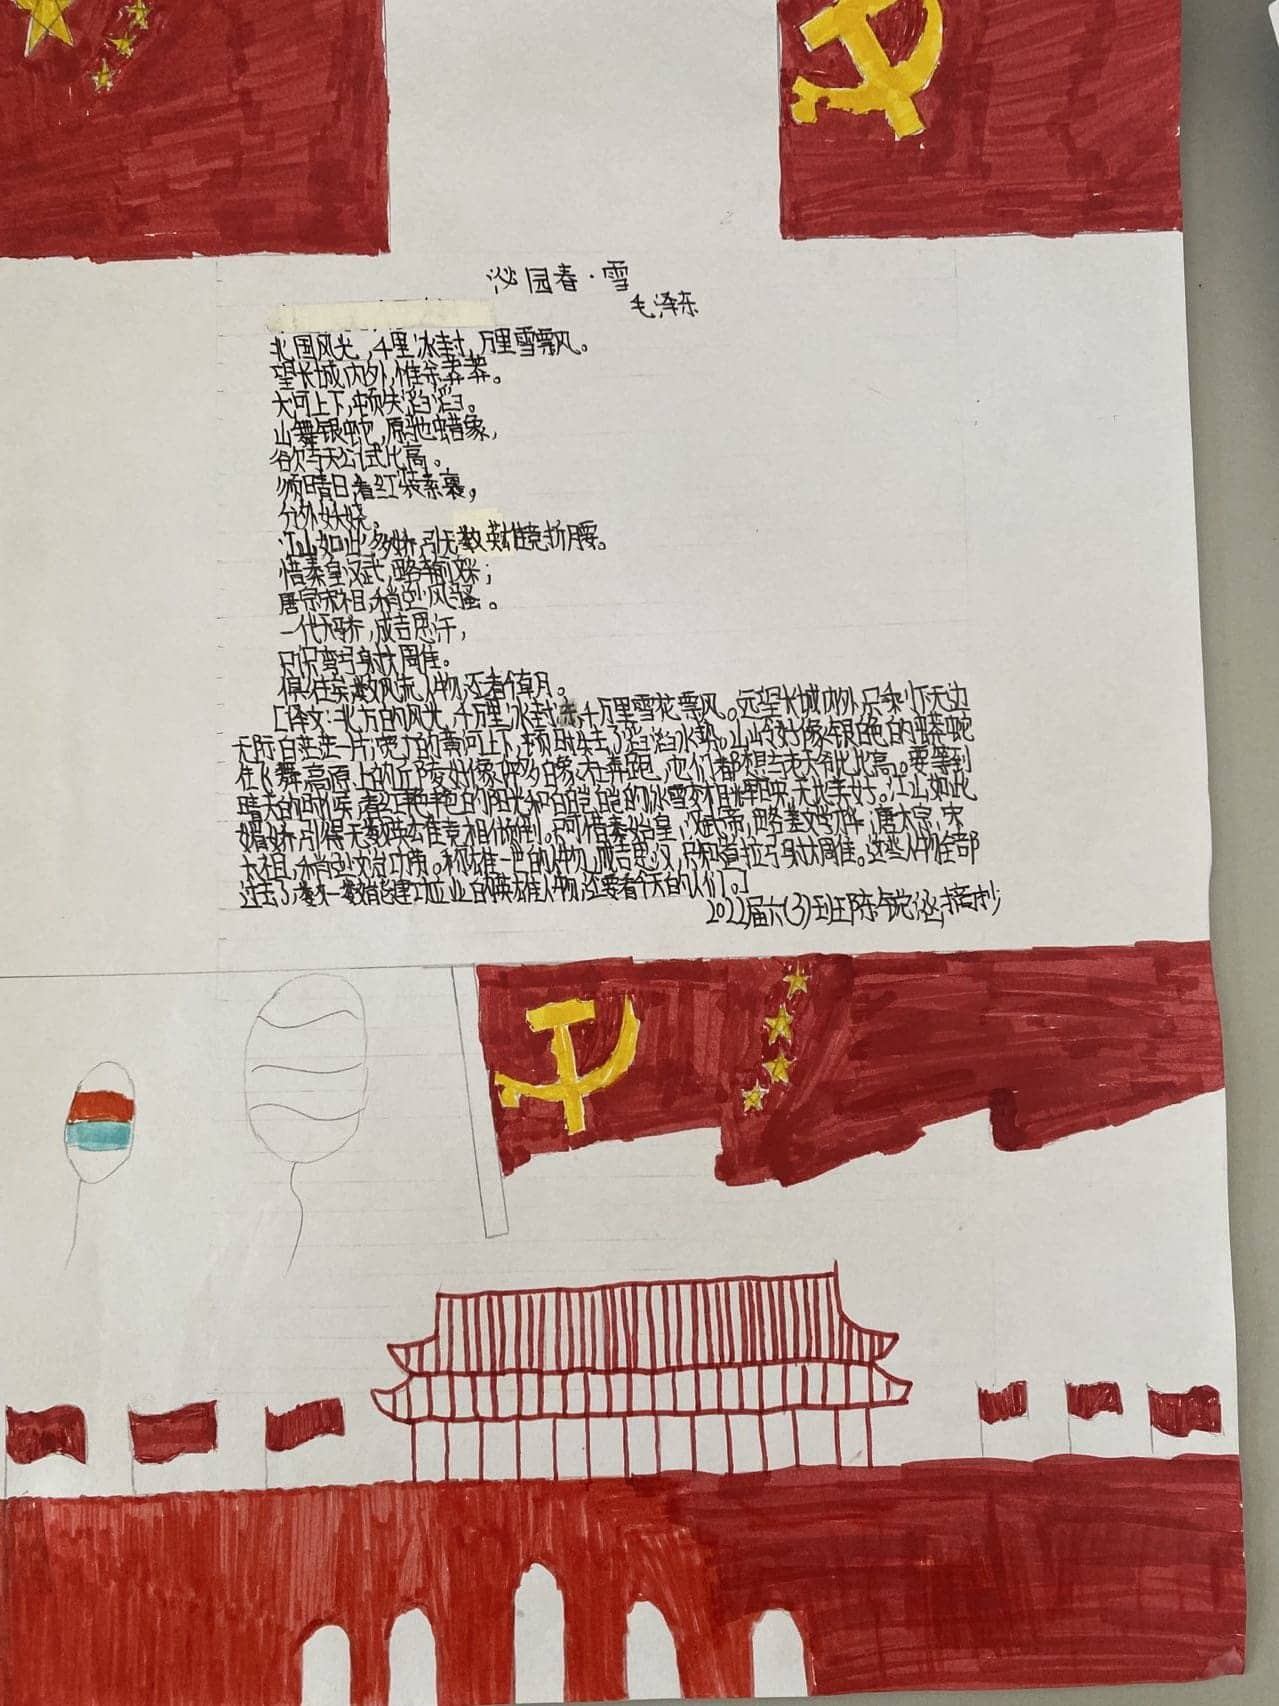 沁园春·雪
毛泽东
北国风光,千里冰封,万里雪飘。
望长城内外,惟余莽莽。
大河上下,顿失滔滔。
山舞银蛇,原驰蜡象,
欲与天公试比高。
须晴日,看红装素裹,
分外妖娆。
江山如此多娇,引无数英雄竞折腰。
惜秦皇汉武,略输文采;
唐宗宋祖,稍逊风骚。
一代天骄,成吉思汗,
只识弯弓射大雕。
俱往矣,数风流人物,还看今朝。
[译文:北方的风光,千万里冰封冻,千万里雪花飘。远望长城内外,只剩下无边
无际白茫茫一片;宽广的黄河上下,顿时失去了滔滔水势。山岭好像银白色的蟒蛇
在飞舞,高原上的丘陵好像许多白象在奔跑,他们都想与老天爷比比高。要等到
晴天的时候,看红艳艳的阳光和白皑皑的冰雪交相辉映,无比美好。江山如此
媚娇,引得无数英雄竞相倾倒。只可惜秦始皇,汉武帝,略差文学才华;唐太宗,宋
太祖,稍逊文治功劳。称雄一世的人物,成吉思汉,只知道拉弓射大雕。这些人物全都
过去了,数一数能建功立业的英雄人物,还要看今天的人们。]
2022届六(3)班陈锐泌摘抄